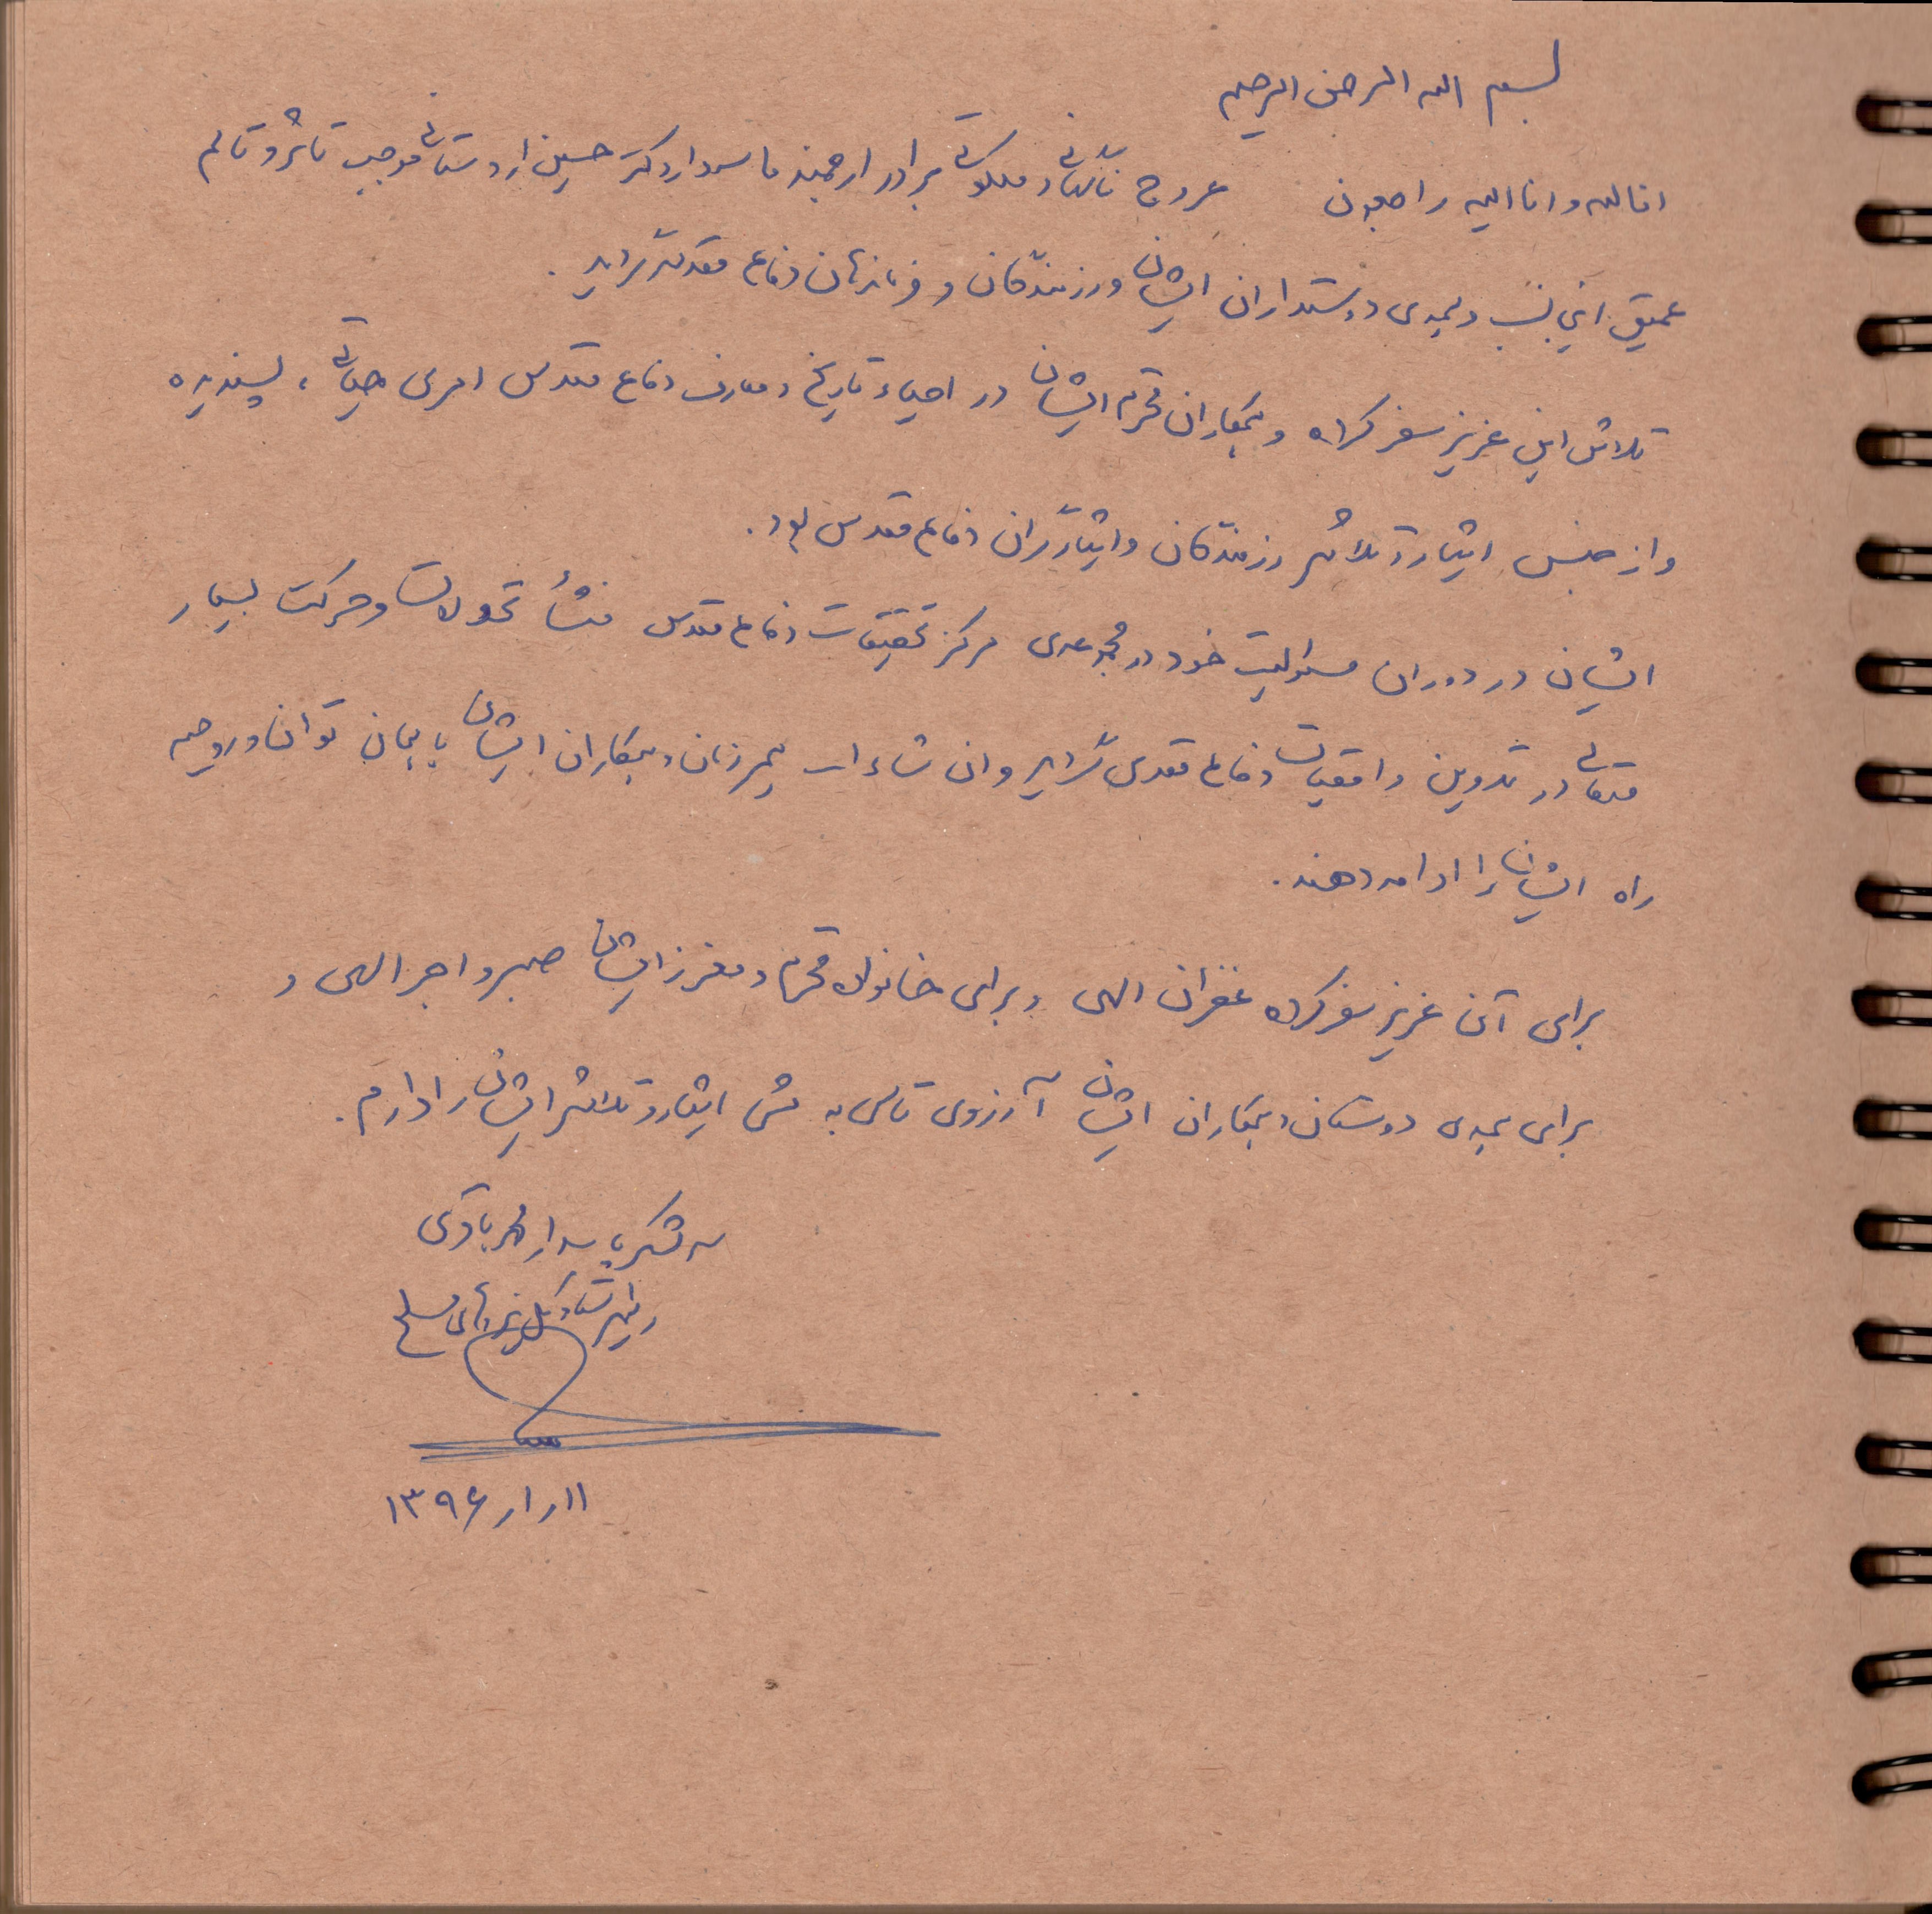 بسم الله الرحمن الرحیم
انا لله و انا الیه راجعون عروج ناگهانی و ملکوتی برادر ارجمند ما سردار دکتر حسین اردستانی موجب تاثر و تالم
عمیق اینجانب و همه‌ی دوستداران ایشان و رزمندگان و فرماندهان دفاع مقدس گردید.
تلاش این عزیز سفر کرده و همکاران محترم ایشان در احیاء تاریخ و معارف دفاع مقدس امری حیاتی، پسندیده
و از جنس ایثار و تلاش رزمندگان و ایثارگران دفاع مقدس بود.
ایشان در دوران مسئولیت خود در مجموعه‌ی مرکز تحقیقات دفاع مقدس منشأ تحولات و حرکت بسیار
متعالی در تدوین واقعیات دفاع مقدس گردید و ان شاء الله همرزمان و همکاران ایشان با همان توان و روحیه
راه ایشان را ادامه دهند.
برای آن عزیز سفر کرده غفران الهی و برای خانواده محترم و معزز ایشان صبر و اجر الهی و
برای همه‌ی دوستان و همکاران ایشان آرزوی تاسی به مشی ایثار و تلاش ایشان را دارم.
سرلشکر پاسدار محمد باقری
رئیس ستاد کل نیروهای مسلح
۱۱ر۱ر۱۳۹۶